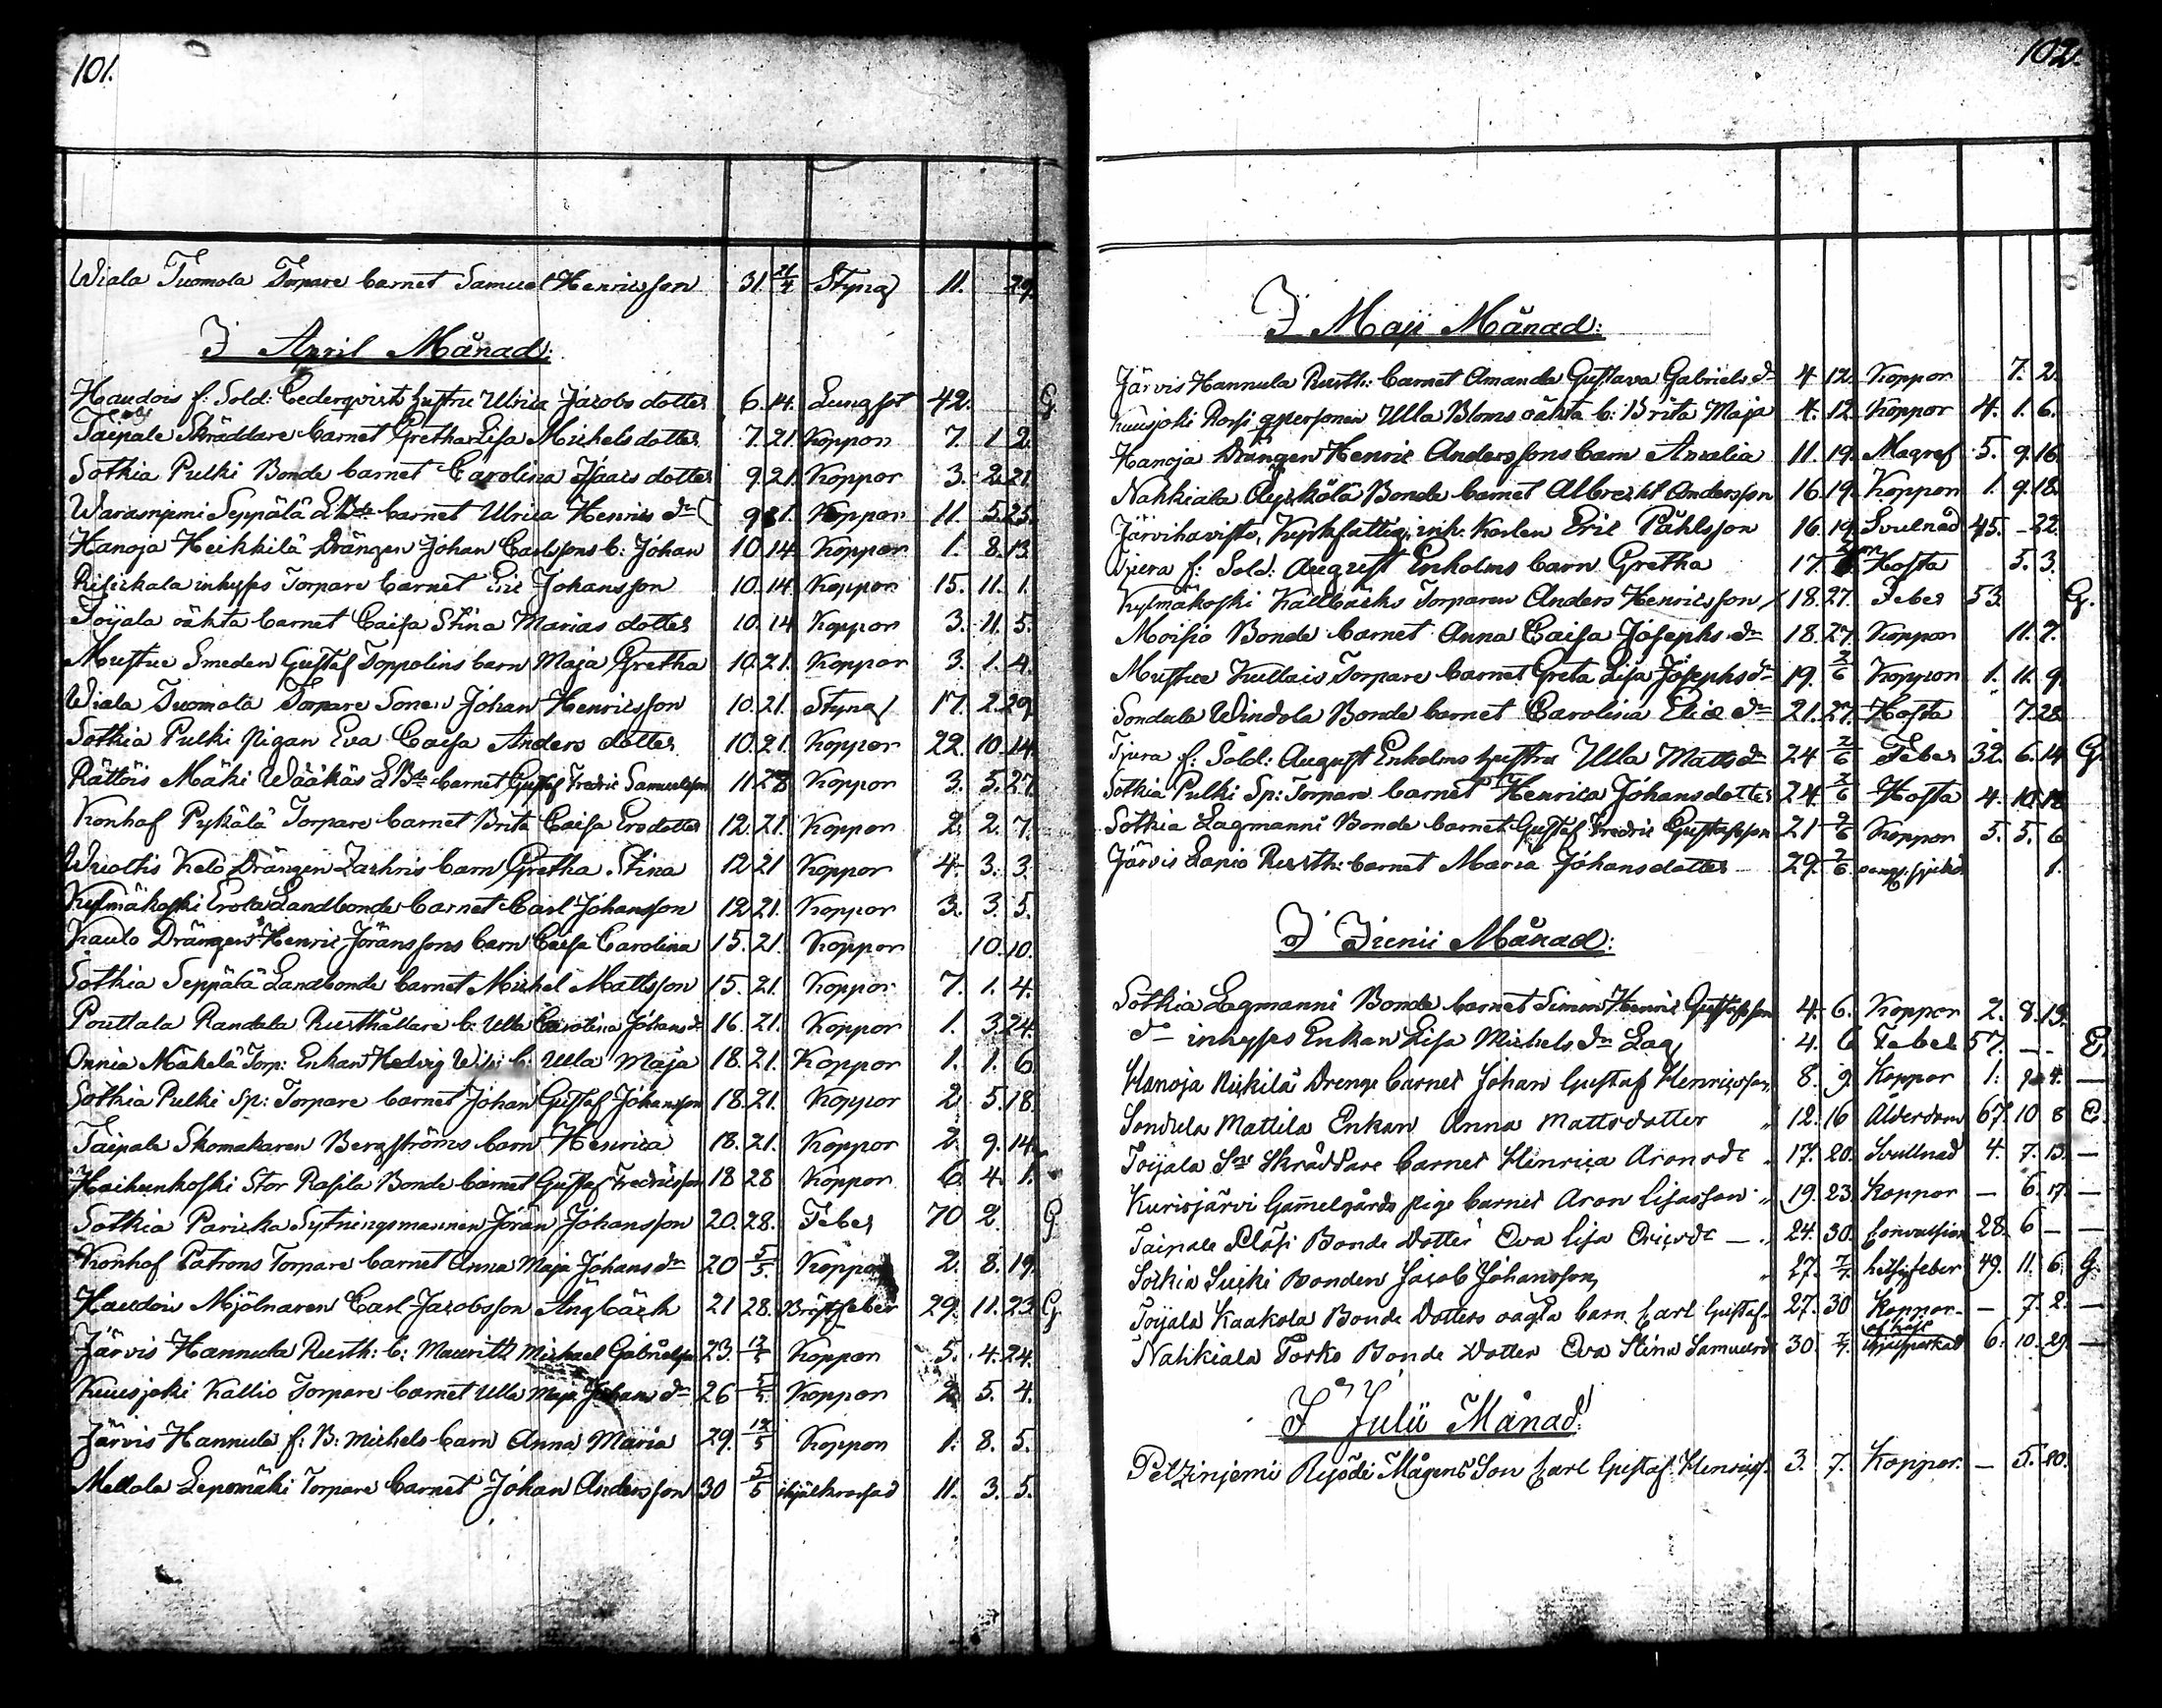 101.
Wiala Tuomola Torpare barnet Samuel Henricsson 31. 21/4 Styng 11. 29.
I April Månad:
Haudois f: Sold: Cederqvists hustru Ulrica Jacobs dotter 6. 14. Lungsot 42. G.
Taipale Skräddare barnet Gretha Lisa Michels dotter 7. 21. Koppor 7. 1. 2.
Sothia Pulki Bonde barnet Carolina Isaacs dotter 9. 21. Koppor 3. 2. 21.
Warasniemi Seppälä barnet Ulrica Henrics dr 9 Koppor 11. 5. 25.
Hanoja Heikkilä Drängen Johan Carlssons b: Johan 10. 14. Koppor 1. 8. 13.
inhyses Torpare barnet Eric Johansson 10. 14. Koppor 15. 11. 1.
Toijala oähta barnet Caisa Stina Marias dotter 10. 14 Koppor 3. 11. 5.
Mustue Smeden Gustaf Toppolins barn Maja Gretha 10. 21. Koppor 3. 1. 4.
Wiala Tuomola Torpare Sonen Johan Henricsson 10. 21. Styng 17. 2. 29.
Sothia Pulki pigan Eva Caisa Anders dotter 10. 21. Koppor 22. 10. 14.
Rättöis Mäki Wääkäs barnet Gustaf Fredric Samuelsson 11. 28 Koppor 3. 5. 27.
Konhof Pykälä Torpare barnet Brita Caisa Ersdotter 12. 21. Koppor 2. 2. 7.
Wuoltis Kelo Drängen Zachris barn Gretha Stina 12 21 Koppor 4. 3. 3.
Kylmäkoski Erola Landbonde barnet Carl Johansson 12 21. Koppor 3. 3. 5.
Kaulo Drängen Henric Jöranssons barn Caisa Carolina 15. 21. Koppor 10. 10.
Sothia Seppälä Landbonde barnet Michel Mattsson 15. 21. Koppor 7. 1. 4.
Pouttala Randala Rusthållare b: Ulla Carolina Johans dr 16. 21. Koppor 1. 3. 24.
Onnia Mäkelä Torp: Enkan Hedvig b: Ulla Maja 18. 21. Koppor 1. 1. 6.
Sothia Pulki Sp: Torpare barnet Johan Gustaf Johansson 18. 21. Koppor 2 5. 18.
Taipale Skomakaren Bergströms barn Henrica 18. 21. Koppor 2. 9. 14.
Haihunkoski Stor Rasila Bonde barnet Gustaf Fredricsson 18 28 Koppor 6. 4. 1.
Sothia Paricka Sytningsmannen Jöran Johansson 20. 28. Feber 70 2. G
Konhof Patrons Torpare barnet Anna Maja Johans dr 20 5/5. Koppor 2. 8. 19.
Haudois Mjölnaren Carl Jacobsson Ängbäck 21 28. Bröstfeber 29. 11. 23. G
Järvis Hannula Rusth: b: Mauritz Michael Gabrielsson 23. 12/5 Koppor 5. 4. 24.
Kuusjoki Kallio Torpare barnet Ulla Maja Johans dr 26 5/5. Koppor 2 5. 4.
Järvis Hannula f: B: Michels barn Anna Maria 29. 12/5 Koppor 1. 8. 5.
Mellola Lepomäki Torpare barnet Johan Andersson 30 5/5 11. 3. 5.
102.
I Maji Månad:
Järvis Hannula Rusth: barnet Amanda Gustava Gabriels dr 4 12. Koppor 7. 2.
Kuusjoki Rossi qpersonen Ulla Bloms oähta b: Brita Maja 4. 12 Koppor 4. 1. 6.
Hanoja Drängen Henric Anderssons barn Amalia 11. 19. Magref 5. 9. 16.
Nahkiala Äyskölä Bonde barnet Albrecht Andersson 16. 19. Koppor 1. 9. 18.
Järvihavisto, inh: Karlen Eric Påhlsson 16 19. Svulnad 45. - 22.
Tjura f: Sold: August Enholms barn Gretha 17. Hosta 5. 3.
Kylmäkoski Källbäcks Torparen Anders Henricsson 18. 27. Feber 53. G.
Moisio Bonde barnet Anna Caisa Josephs dr 18. 27. Koppor 11. 7.
Mustue Kullais Torpare barnet Greta Lisa Josephs dr 19. 2/6 Koppor 1. 11. 9.
Sondula Windola Bonde barnet Carolina Elice dr 21. 27. Hosta 7. 28.
Tjura f: Sold: August Enholms hustru Ulla Matts dr 24 2/6 Feber 32. 6. 14 G.
Sothia Pulki Sp: Torpare barnet Henrica Johansdotter 24. 2/6 Hosta 4. 10. 18
Sothia Lagmanni Bonde barnet Gustaf Fredric Gustafsson 21 2/6 Koppor 5. 5. 6
Järvis Lapio Rusth: barnet Maria Johansdotter 29. 2/6. 1.
I Junii Månad:
Sothia Lagmanni Bonde barnet Simon Henric Gustafsson 4. 6. Koppor 2. 8. 19.
do inhyses Enkan Lisa Michels dr Lag 4. 6 Feber 57. - - E.
Hanoja Drenge barnet Johan Gustaf Henricsson 8. 9. Koppor 1. 4. -
Sondula Mattila Enkan Anna Mattsdotter 12. 16 Ålderdom 67. 10 8 E.
Toijala Skräddare barnet Henrica Aronsdr 17. 20. Svullnad 4. 7. 13. -
Kurisjärvi Gammelgårds pige barnet Aron Lisasson 19. 23. Koppor - 6. 17. -
Taipale Bonde Dotter Eva Lisa Ericsdr 24. 30. Convulsion 28. 6 - -
Sothia Suiki Bonden Jacob Johansson 27. 7/7. hetsig feber 49. 11. 6. G.
Toijala Kaakola Bonde Dotters oägta barn Carl Gustaf 27. 30 Koppor - 7. 2. -
Nahkiala Torko Bonde Dotter Eva Stina Samuelsdr 30. 7/7. af häst ihjälsparkad 6. 10. 29. -
I Julii Månad:
Petziniemi Mågens Son Carl Gustaf Henricss. 3. 7. Koppor. - 5. 20.